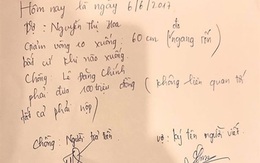 Hôm nay là ngày 6/6/2017
Vợ: Nguyễn Thị Hoa
Giảm vòng eo xuống: 60 cm (ngang rốn) đo
bất cứ khi nào xuống
Chồng Lê Đăng Chính
phải đưa 100 triệu đồng ( không liên quan tới
bất cứ phải nộp)
Chồng: Người trả tiền vợ: ký tên người viết.